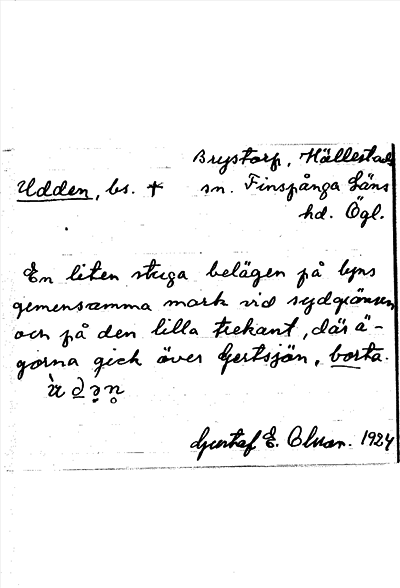 Brystorp, Hällestads
Udden, bs. † sn. Finspånga Läns
hd. Ögl.
En liten stuga belägen på byns
gemensamma mark vid sydgränsen
och på den lilla trekant, där ä-
gorna gick över Gertsjön, borta.
Gustaf E. Olsson. 1924